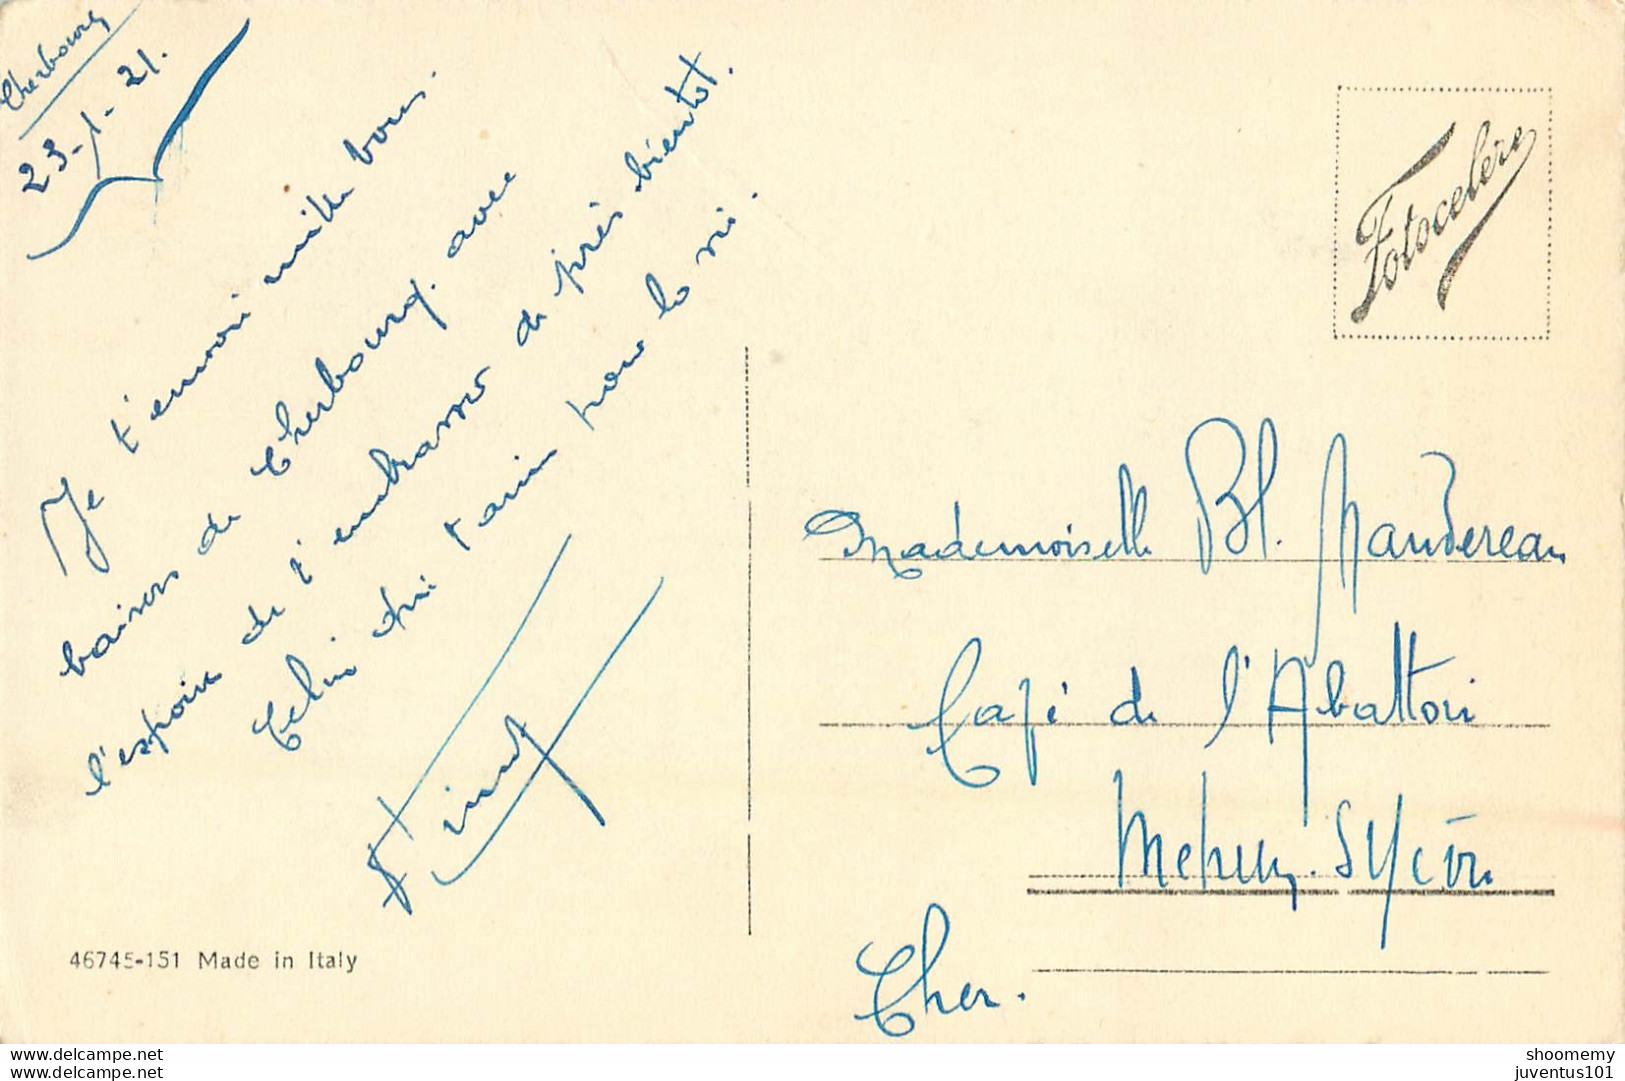 Cherbourg
23-1-21.
Je t'envoi mille bons
baisers de Cherbourg. avec
l'espoir de t'embrasser de près bientot.
Celui qui t'aime pour la vie.
Fotocelere
Mademoiselle Bl. Mandereau
Café de l'Abattoir
Mehun-S/Yèvre
Cher.
46745-151 Made in Italy
delcampe.net
delcampe.net
shoomemy
juventus101